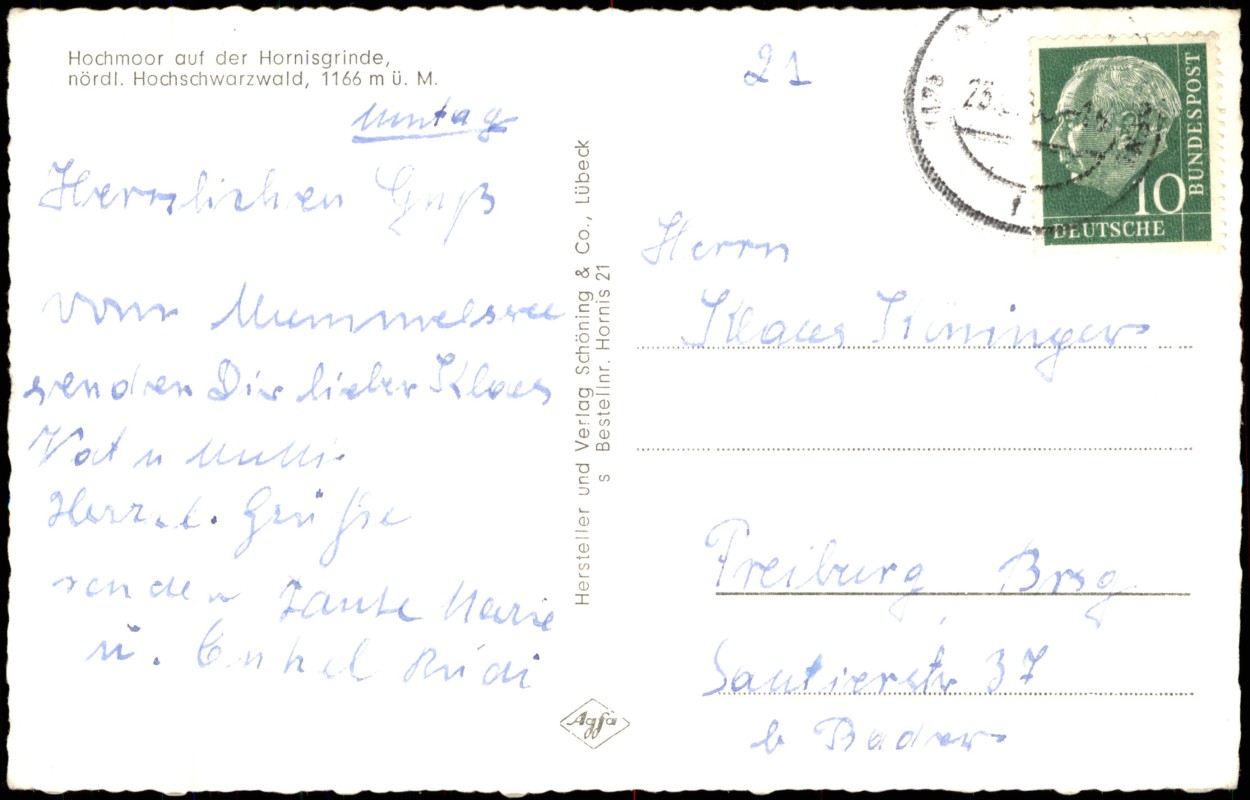 Hochmoor auf der Hornisgrinde,
nördl. Hochschwarzwald, 1166 m ü. M.
Herzlichen Gruß
vom Mummelsee
senden Dir lieber Klaus
Vat u Mutti
Herzl. Grüße
senden Tante Marie
u. Onkel Rudi
Hersteller und Verlag Schöning & Co., Lübeck
s Bestellnr. Hornis 21
Agfa
21
DEUTSCHE
BUNDESPOST
10
Herrn
Klaus Köninger
Freiburg Brsg
Sautierstr 37
b Bader